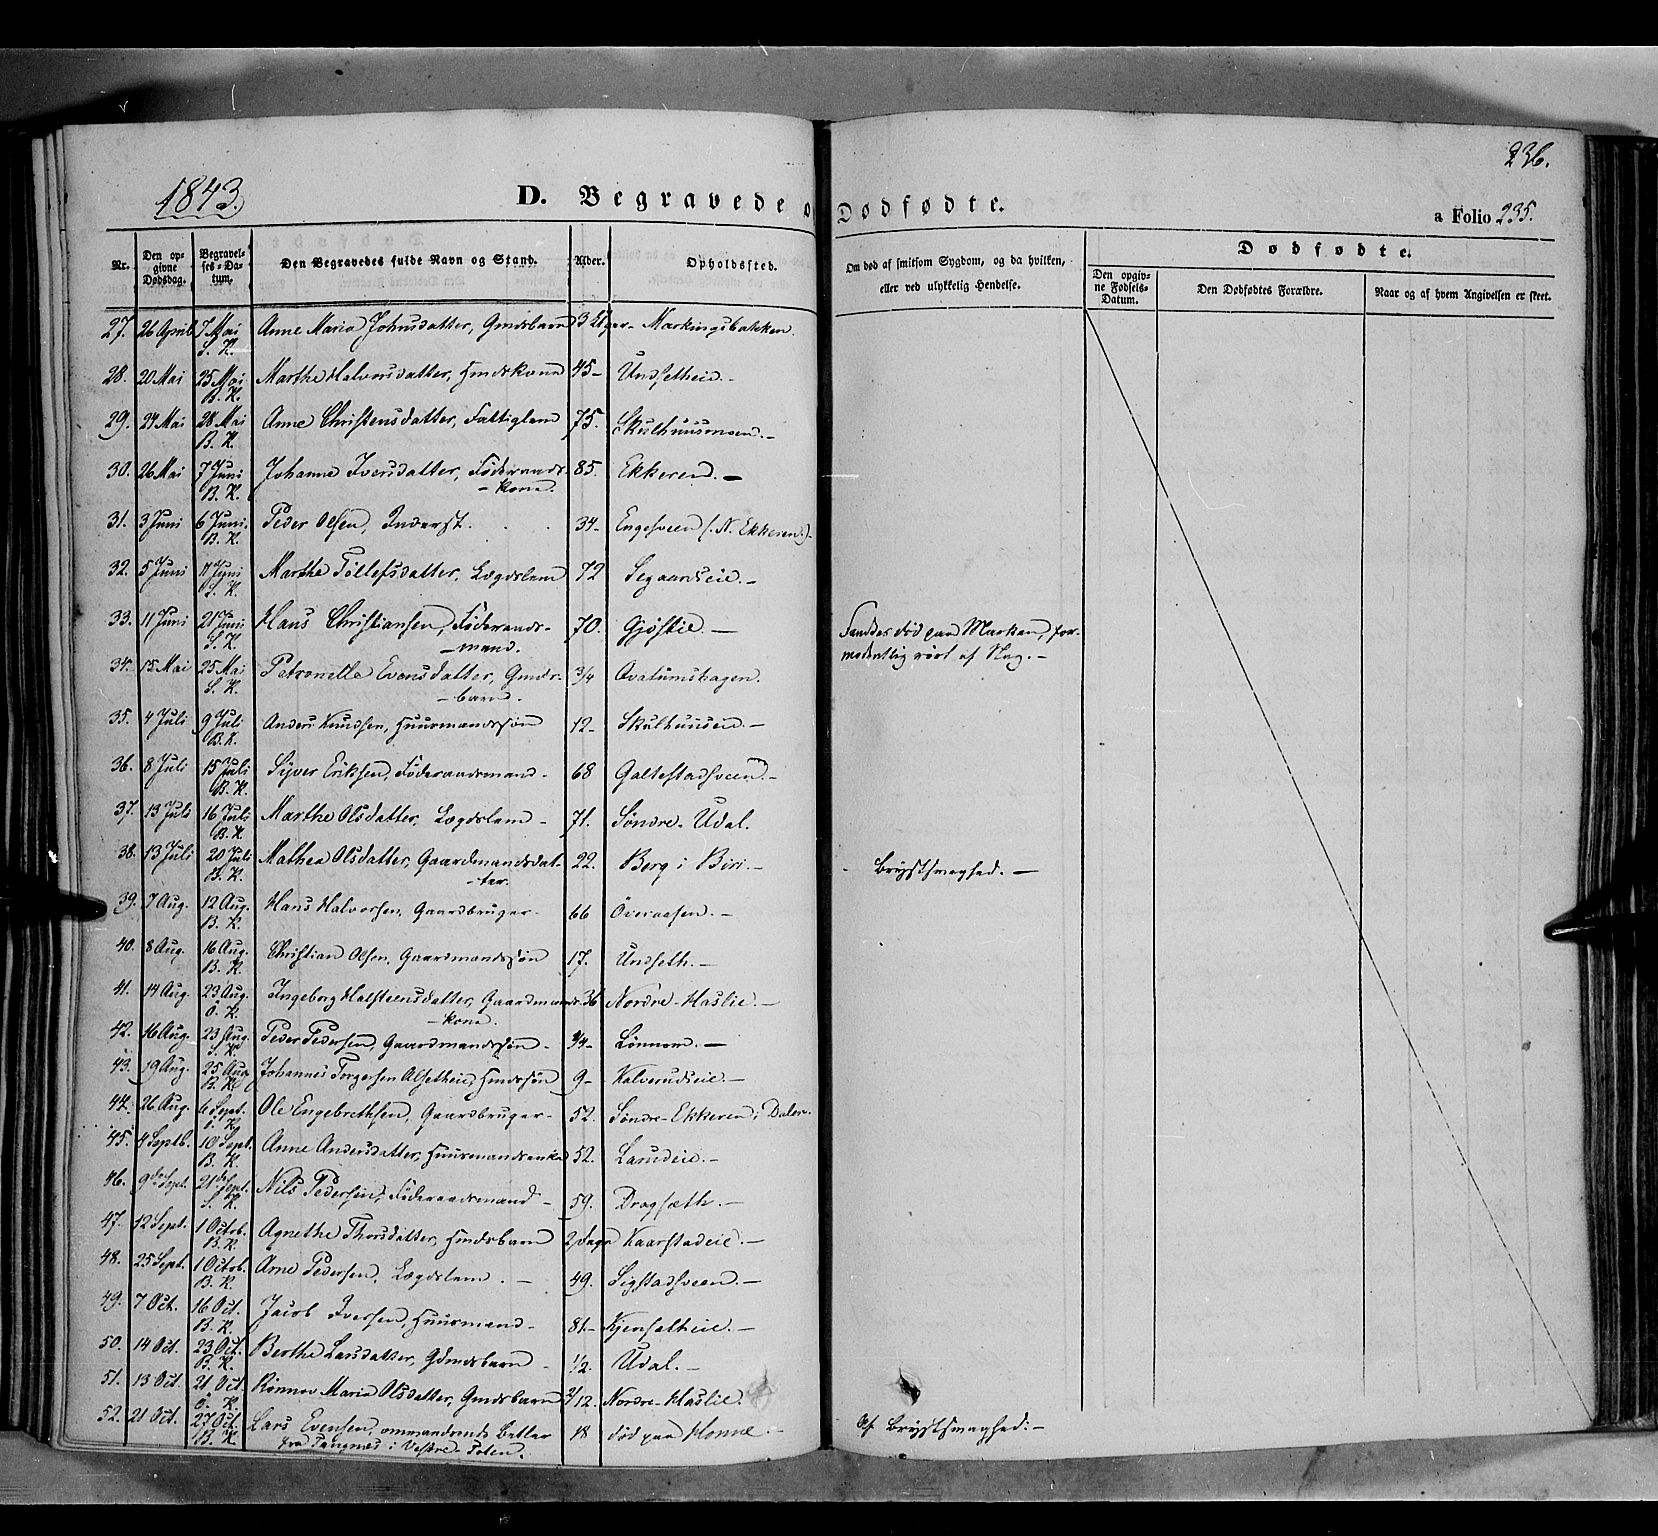 236.
1843.
D. Begravede o
Dødfødte.
a Folio 235.
Nr.
Den opgivne Dødsdag.
Begravelses-Datum.
Den Begravedes fulde Navn og Stand.
Alder.
Opholdssted.
Om død af smitsom Sygdom, og da hvilken, eller ved ulykkelig Hendelse.
Dødfødte.
Den opgivne Fødsels-Datum.
Den Dødfødtes Forældre.
Naar og af hvem Angivelsen er skeet.
27. 26 April 7 Mai S. K. Anne Maria Johnsdatter, Gmdsbarn 3 Uger - Markingsbakken.
28. 20 Mai 25 Mai B. K. Marthe Halvorsdatter, Hmdskone 45 - Undsetheie. -
29. 24 Mai 28 Mai B. K. Anne Christensdatter, Fattiglem 75. Skulhuusmoen. -
30. 26 Mai 7 Juni B. K. Johanne Iversdatter, Føderaads-kone. 85. Ekkeren. -
31. 3 Juni 6 Juni. B. K. Peder Olsen, Inderst. 34 - Engesveen (: N. Ekkeren:) -
32. 5 Juni 11 Juni S. K. Marthe Tollefsdatter, Lægdslem 72 Segaardseie. -
33. 11 Juni 21 Juni S. K. Hans Christiansen, Føderaads-mand. 70. Gjøslie. - Fandtes død paa Marken, for-modentlig rørt af Slag. -
34. 15 Mai 25 Mai S. K. Petronelle Evensdatter, Gmds-barn. 3/4 Ovatumshagen.
35. 4 Juli 9 Juli B. K. Anders Knudsen, Huusmandssøn 12 - Skulhuusen. -
36. 8 Juli 15 Juli B. K. Sijver Eriksen, Føderaadsmand - 68 Galtestadsveen. -
37. 13 Juli 16 Juli B. K. Marthe Olsdatter, Lægdslem - 71. Søndre - Udal.
38. 13 Juli 20 Juli B. K. Mathea Olsdatter, Gaardmandsdat-ter. 22. Berg i Biri. - Brystsvaghed. -
39. 7 Aug. 12 Aug. B. K. Hans Halvorsen, Gaardbruger - 66 Overaasen. -
40. 8 Aug. 16 Aug. B. K. Christian Olsen, Gaardmandssøn 17. Undseth. -
41. 14 Aug. 23 Aug. Ø. K. Ingeborg Halsteensdatter, Gaardmands-kone. 36 Nordre - Haslie. -
42. 16 Aug. 23 Aug. S. K. Peder Pedersen, Gaardmandssøn - 3/4 - Lønnom. -
43. 19 Aug. 25 Aug B. K. Johannes Torgersen Alsetheie, Hmdssøn 9 - Kalverudseie. -
44. 26 Aug. 6 Sept. Ø. K. Ole Engebrethsen, Gaardbruger - 52. Søndre - Ekkeren i Dalen.
45. 4 Septb. 10 Sept. B. K. Anne Andersdatter, Huusmandsenke 52. Larudeie. -
46. 9de Sept. 21de Sept. S. K. Nils Pedersen, Føderaadsmand - 59. Dragsæth. -
47. 12 Sept. 1 Octob. B. K. Agnethe Thorsdatter, Hmdsbarn 2 Dage Kaarstadeie. -
48. 25 Sept. 1 Octob. B. K. Arne Pedersen, Lægdslem. - 49. Sigstadsveen. -
49. 7 Oct. 16 Oct. B. K. Jacob Iversen, Huusmand - 81 - Kjensetheie. -
50. 14 Oct. 23 Oct. B. K. Berthe Larsdatter, Gmdsbarn - 1/2. Udal. -
51. 13 Oct. 21 Oct. Ø. K. Rønnov Maria Olsdatter, Gmdsbarn 2/12. Nordre - Haslie.
52. 21 Oct. 27 Oct. B. K. Lars Evensen, omvandrende Betler fra Tangnes i Vestre - Toten. 18 død paa Honne. - Af Brystsvaghed: -